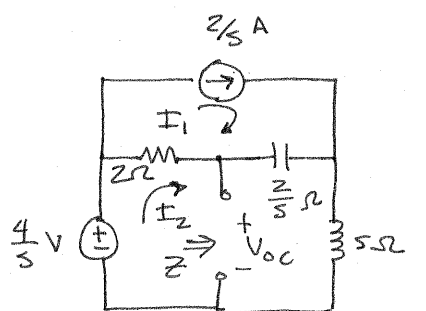 2/s A
I₁
2Ω
2/s Ω
I₂
4/s V
+
-
Z ⇒
+
Voc
-
sΩ